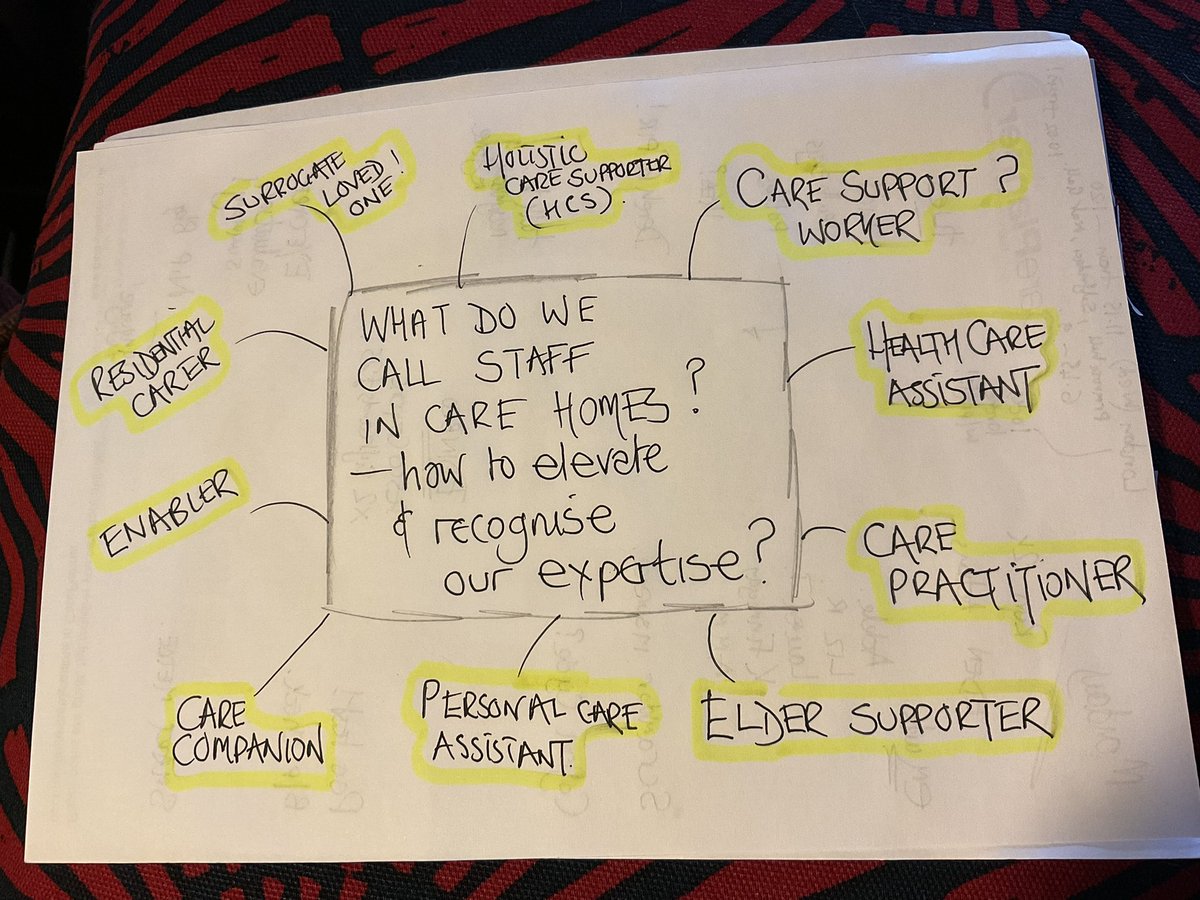 WHAT DO WE
CALL STAFF
IN CARE HOMES?
– how to elevate
& recognise
our expertise?
SURROGATE
LOVED!
ONE
HOLISTIC
CARE SUPPORTER
(HCS).
CARE SUPPORT?
WORKER
HEALTH CARE
ASSISTANT
CARE
PRACTITIONER
ELDER SUPPORTER
PERSONAL CARE
ASSISTANT.
CARE
COMPANION
ENABLER
RESIDENTIAL
CARER